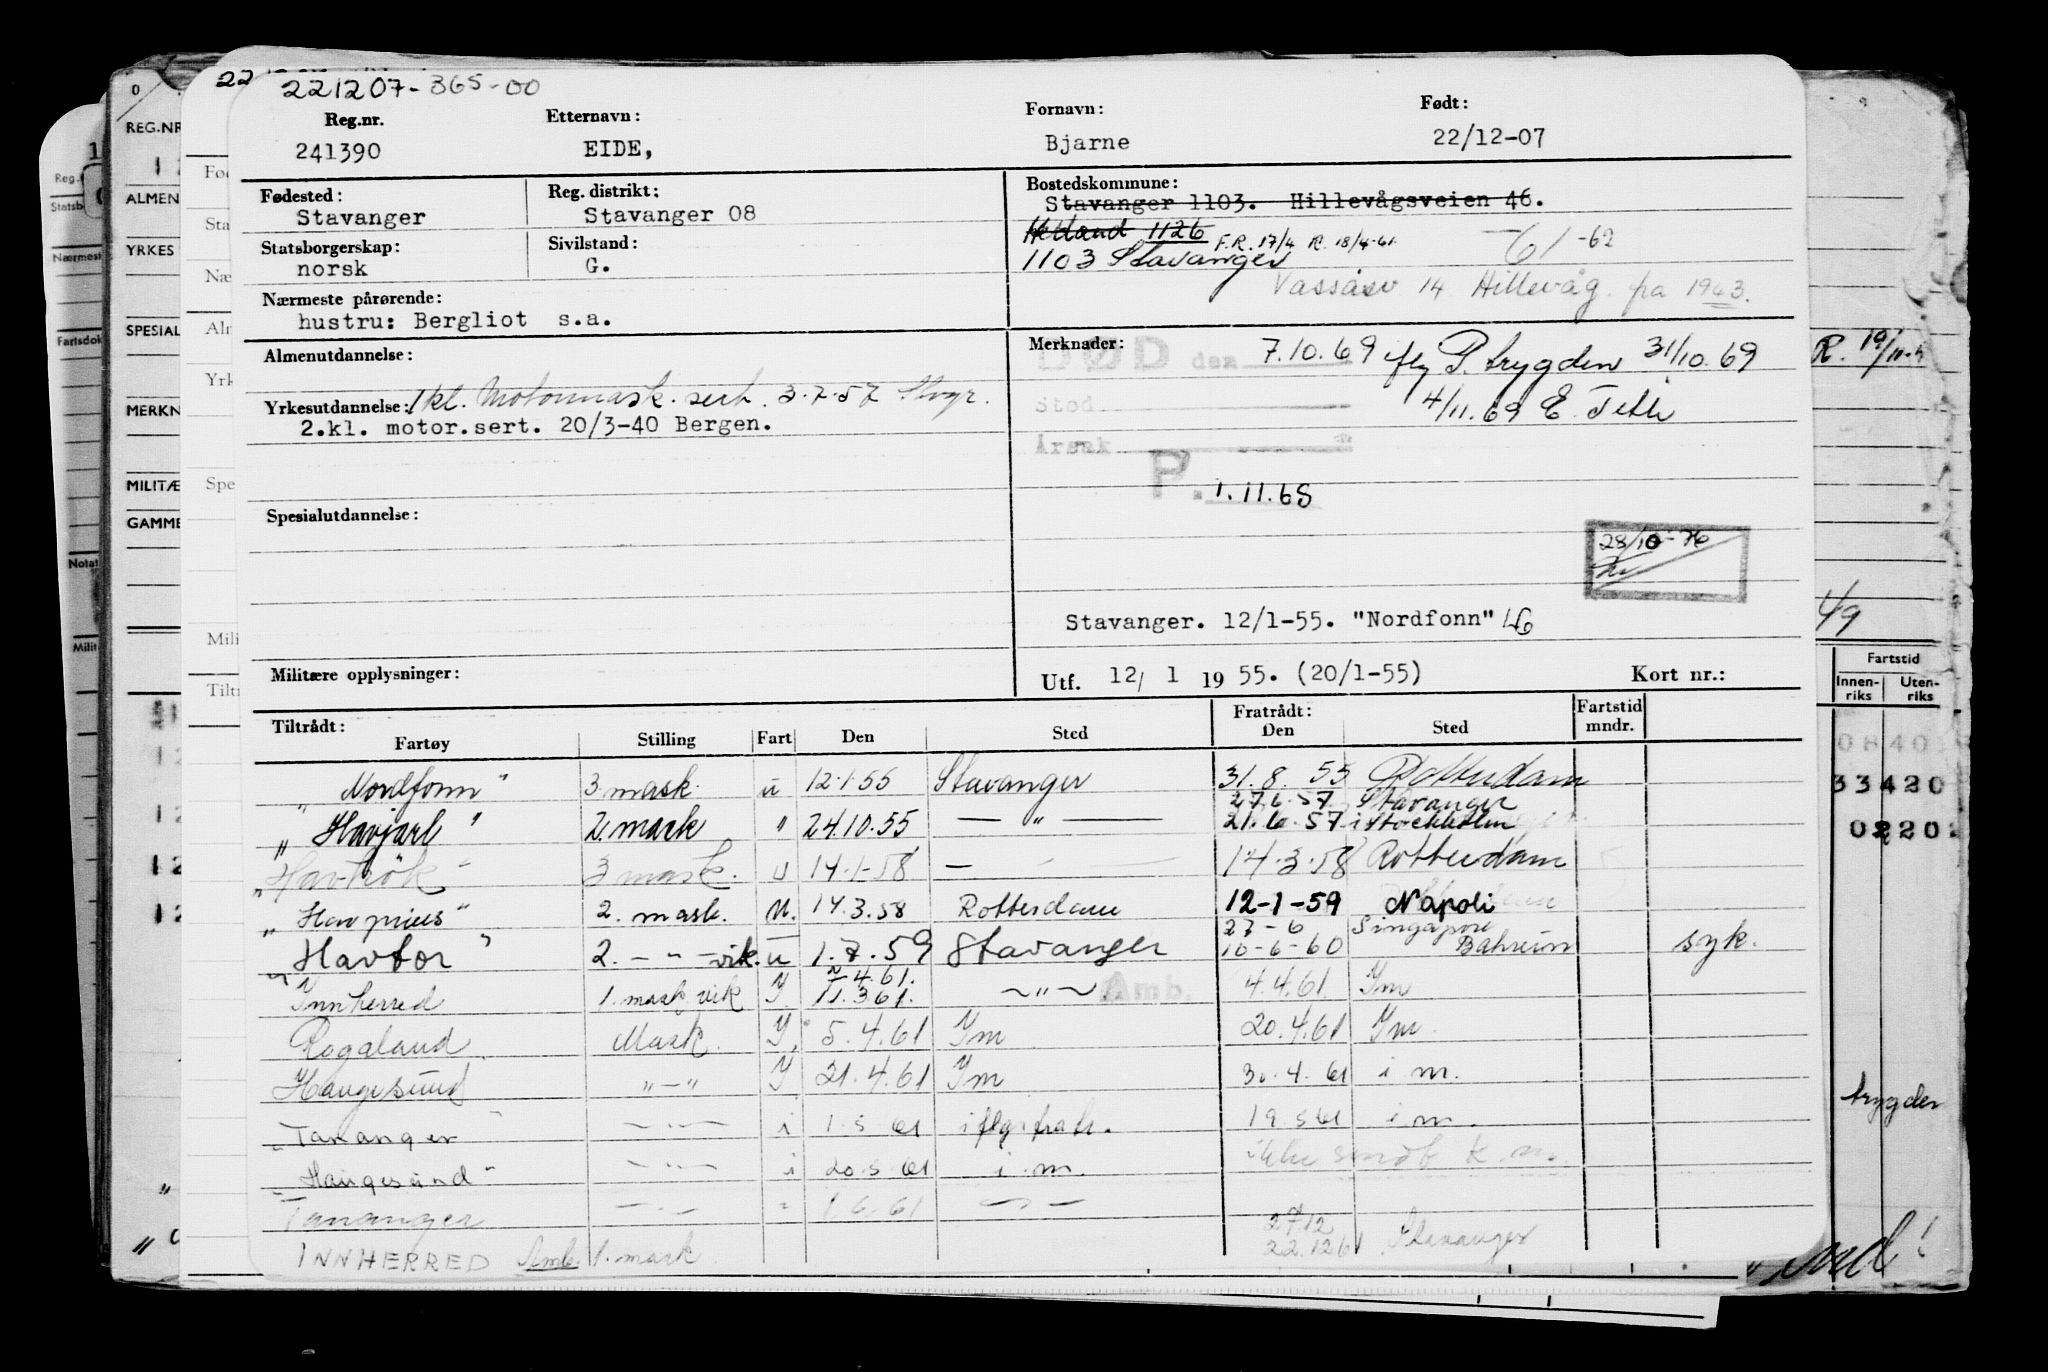 221207-365-00
Reg.nr. Etternavn: Fornavn: Født:
241390 EIDE, Bjarne 22/12-07
Fødested: Reg. distrikt: Bostedskommune:
Stavanger Stavanger 08 Stavanger 1103. Hillevågsveien 46.
Hetland 1126 F.R. 17/4 R. 18/4-61 -61-62
Statsborgerskap: Sivilstand:
norsk G. 1103 Stavanger
Vassåsv 14 Hillevåg. fra 1963.
Nærmeste pårørende:
hustru: Bergliot s.a.
Almenutdannelse: Merknader:
DØD den 7.10.69 flg P. trygden 31/10.69
Sted 4/11.69 E.
1 kl. Motormask. sert. 3.7.57 Stvgr.
Yrkesutdannelse:
2.kl. motor.sert. 20/3-40 Bergen.
Årsak
P. 1.11.68
Spesialutdannelse:
28/10-76
Stavanger. 12/1-55. "Nordfonn"
Militære opplysninger: Utf. 12/ 1 19 55. (20/1-55) Kort nr.:
Tiltrådt: Fratrådt: Fartstid
Fartøy Stilling Fart Den Sted Den Sted mndr.
"Nordfonn" 3 mask. u 12.1.55 Stavanger 31.8.55 Rotterdam
27.6.57 Stavanger
"Havjarl" 2. mask " 24.10.55 — " — 21.6.57 i Stockholm
"Havhök" 3 mask. u 14.1.58 — 14.3.58 Rotterdam
"Havprins" 2. mask. u. 14.3.58 Rotterdam 12-1-59 Napoli
27-6 Singapore
"Havtor" 2. — " — vik. u 1.7.59 Stavanger 10-6-60 Bahrein syk.
4.61.
Innherred 1. mask vik Y 11.3.61. — " — Amb. 4.4.61 Ym
Rogaland Mask. Y. 5.4.61 Ym 20.4.61 Ym
Haugesund " — " Y 21.4.61 Ym 30.4.61 i m.
"Tananger" — " — i 1.5.61 i flg. fratr. 19.5.61 i m.
"Haugesund" — " — i 20.5.61 i m. ikke
Tananger — " — " 1.6.61 — " —
27.12
22.12.61 Stavanger
INNHERRED Amb. 1. mask
REG.NR
ALMEN
YRKES
SPESIAL
MERKN
MILITÆ
GAMME
R. 19/11-
49
Fartstid
Innen-riks Uten-riks
08 40
33 420
02 202
trygden